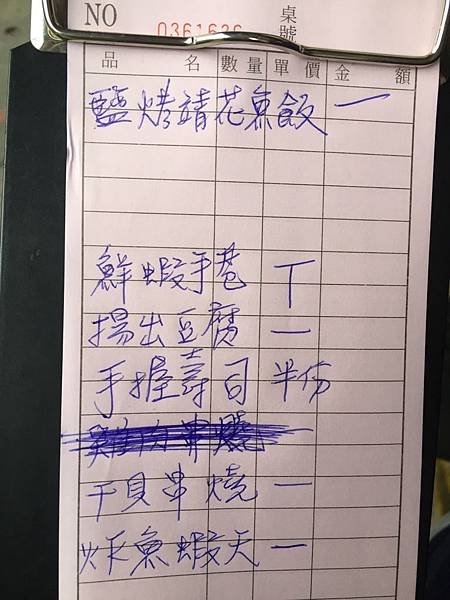 NO 0361636 桌號
品名 數量 單價 金額
鹽烤靖花魚飯 一
鮮蝦手巷 丅
揚出豆腐 一
手握壽司 半份
干貝串燒 一
炸魚蝦天 一